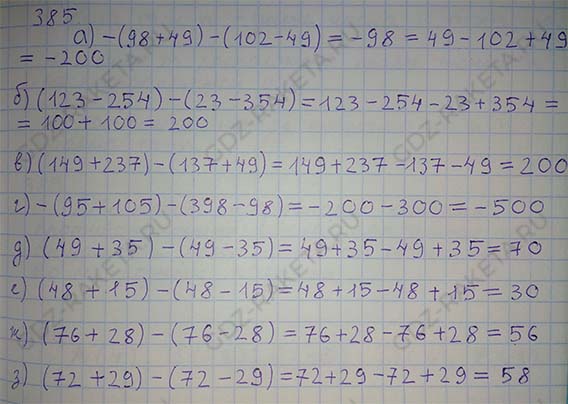 385
а) -(98+49)-(102-49)=-98=49-102+49
=-200
б) (123-254)-(23-354)=123-254-23+354=
=100+100=200
в) (149+237)-(137+49)=149+237-137-49=200
г) -(95+105)-(398-98)=-200-300=-500
д) (49+35)-(49-35)=49+35-49+35=70
е) (48+15)-(48-15)=48+15-48+15=30
ж) (76+28)-(76-28)=76+28-76+28=56
з) (72+29)-(72-29)=72+29-72+29=58
GDZ-RAKETA.RU